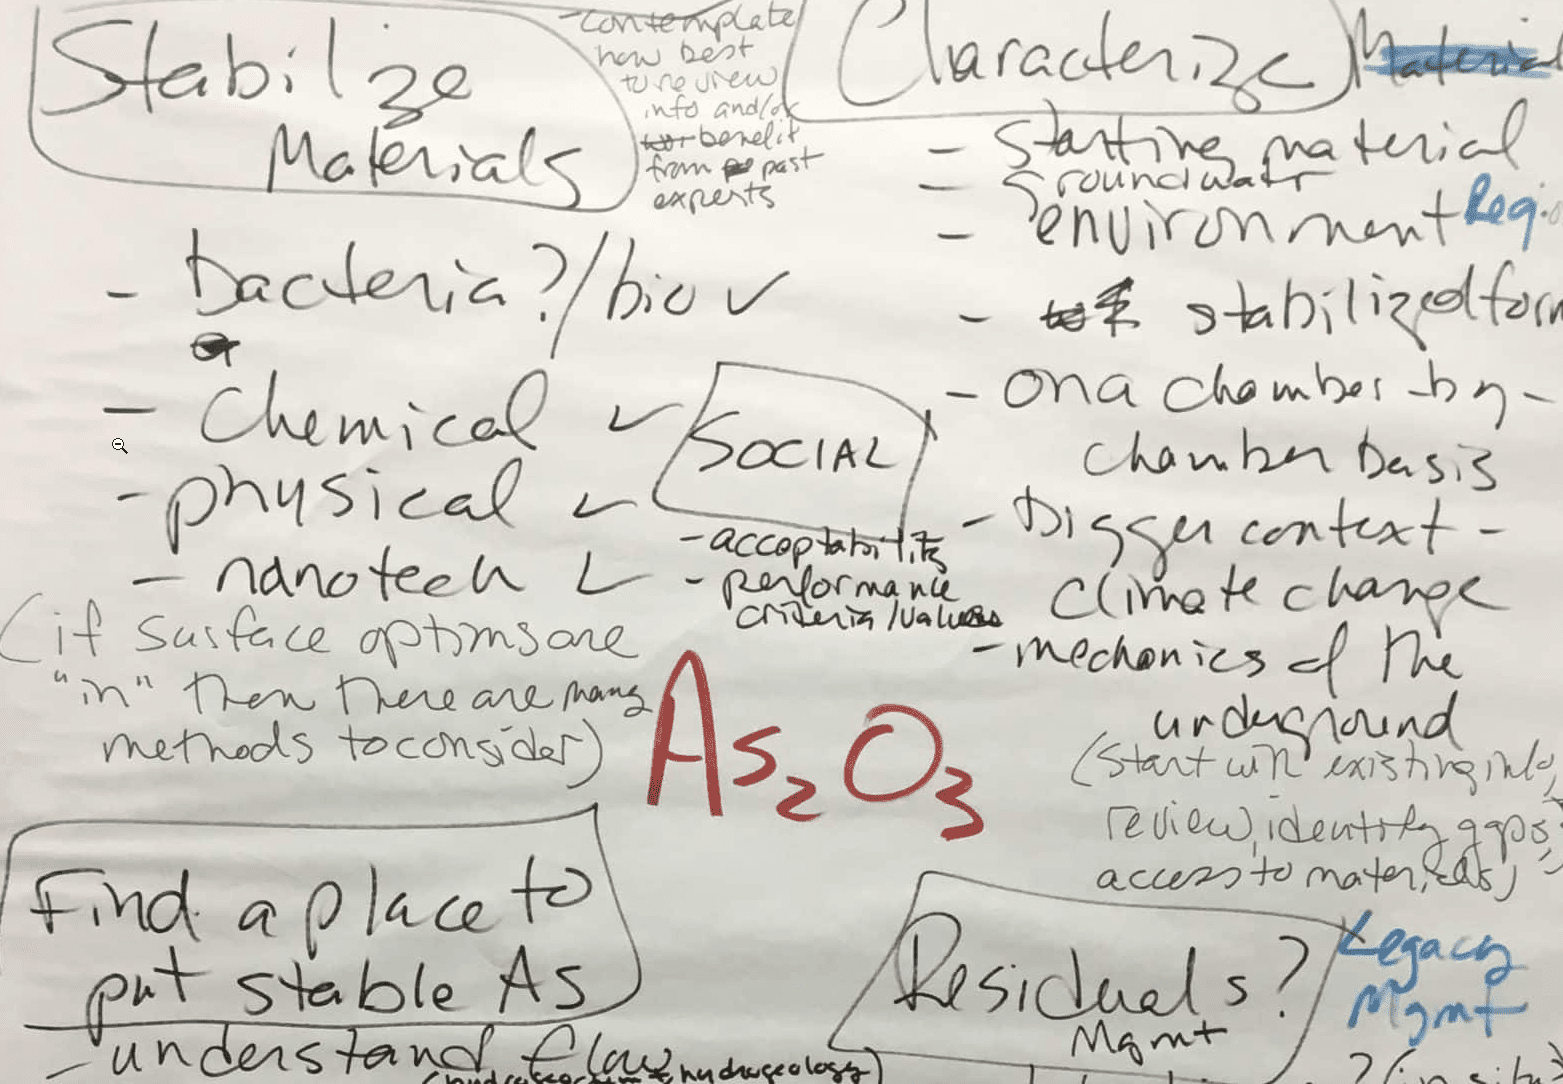 Stabilize
Materials
- contemplate
how best
to review
info and/or
benefit
from past
experts
- bacteria?/bio ✓
- chemical ✓
- physical ✓
- nanotech ✓
(if surface options are
"in" then there are many
methods to consider)
SOCIAL
- acceptability
- performance
criteria/values
As₂O₃
Characterize Material
- starting material
- Groundwatr
- environment
- stabilized form
- on a chamber-by-
chamber basis
- Bigger context -
climate change
- mechanics of the
underground
(start with existing info,
review, identify gaps,
access to materials)
Find a place to
put stable As
- understand flow
hydrogeology)
Residuals?
Mgmt
Legacy
Mgmt
? (in situ